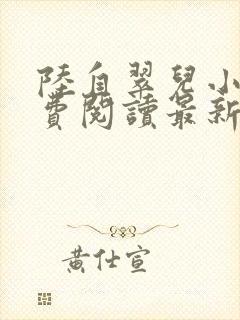 陸自翠兒小
費閱讀最新
黃仕宣